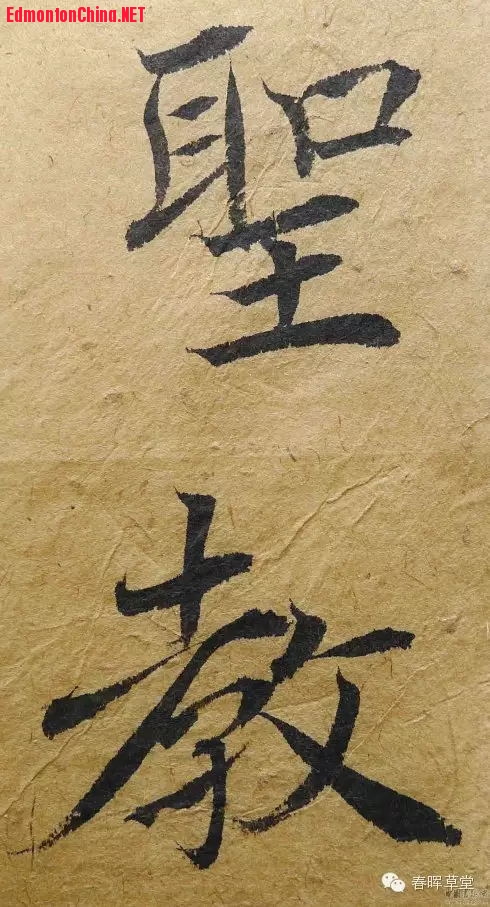 EdmontonChina.NET
聖
教
春晖草堂